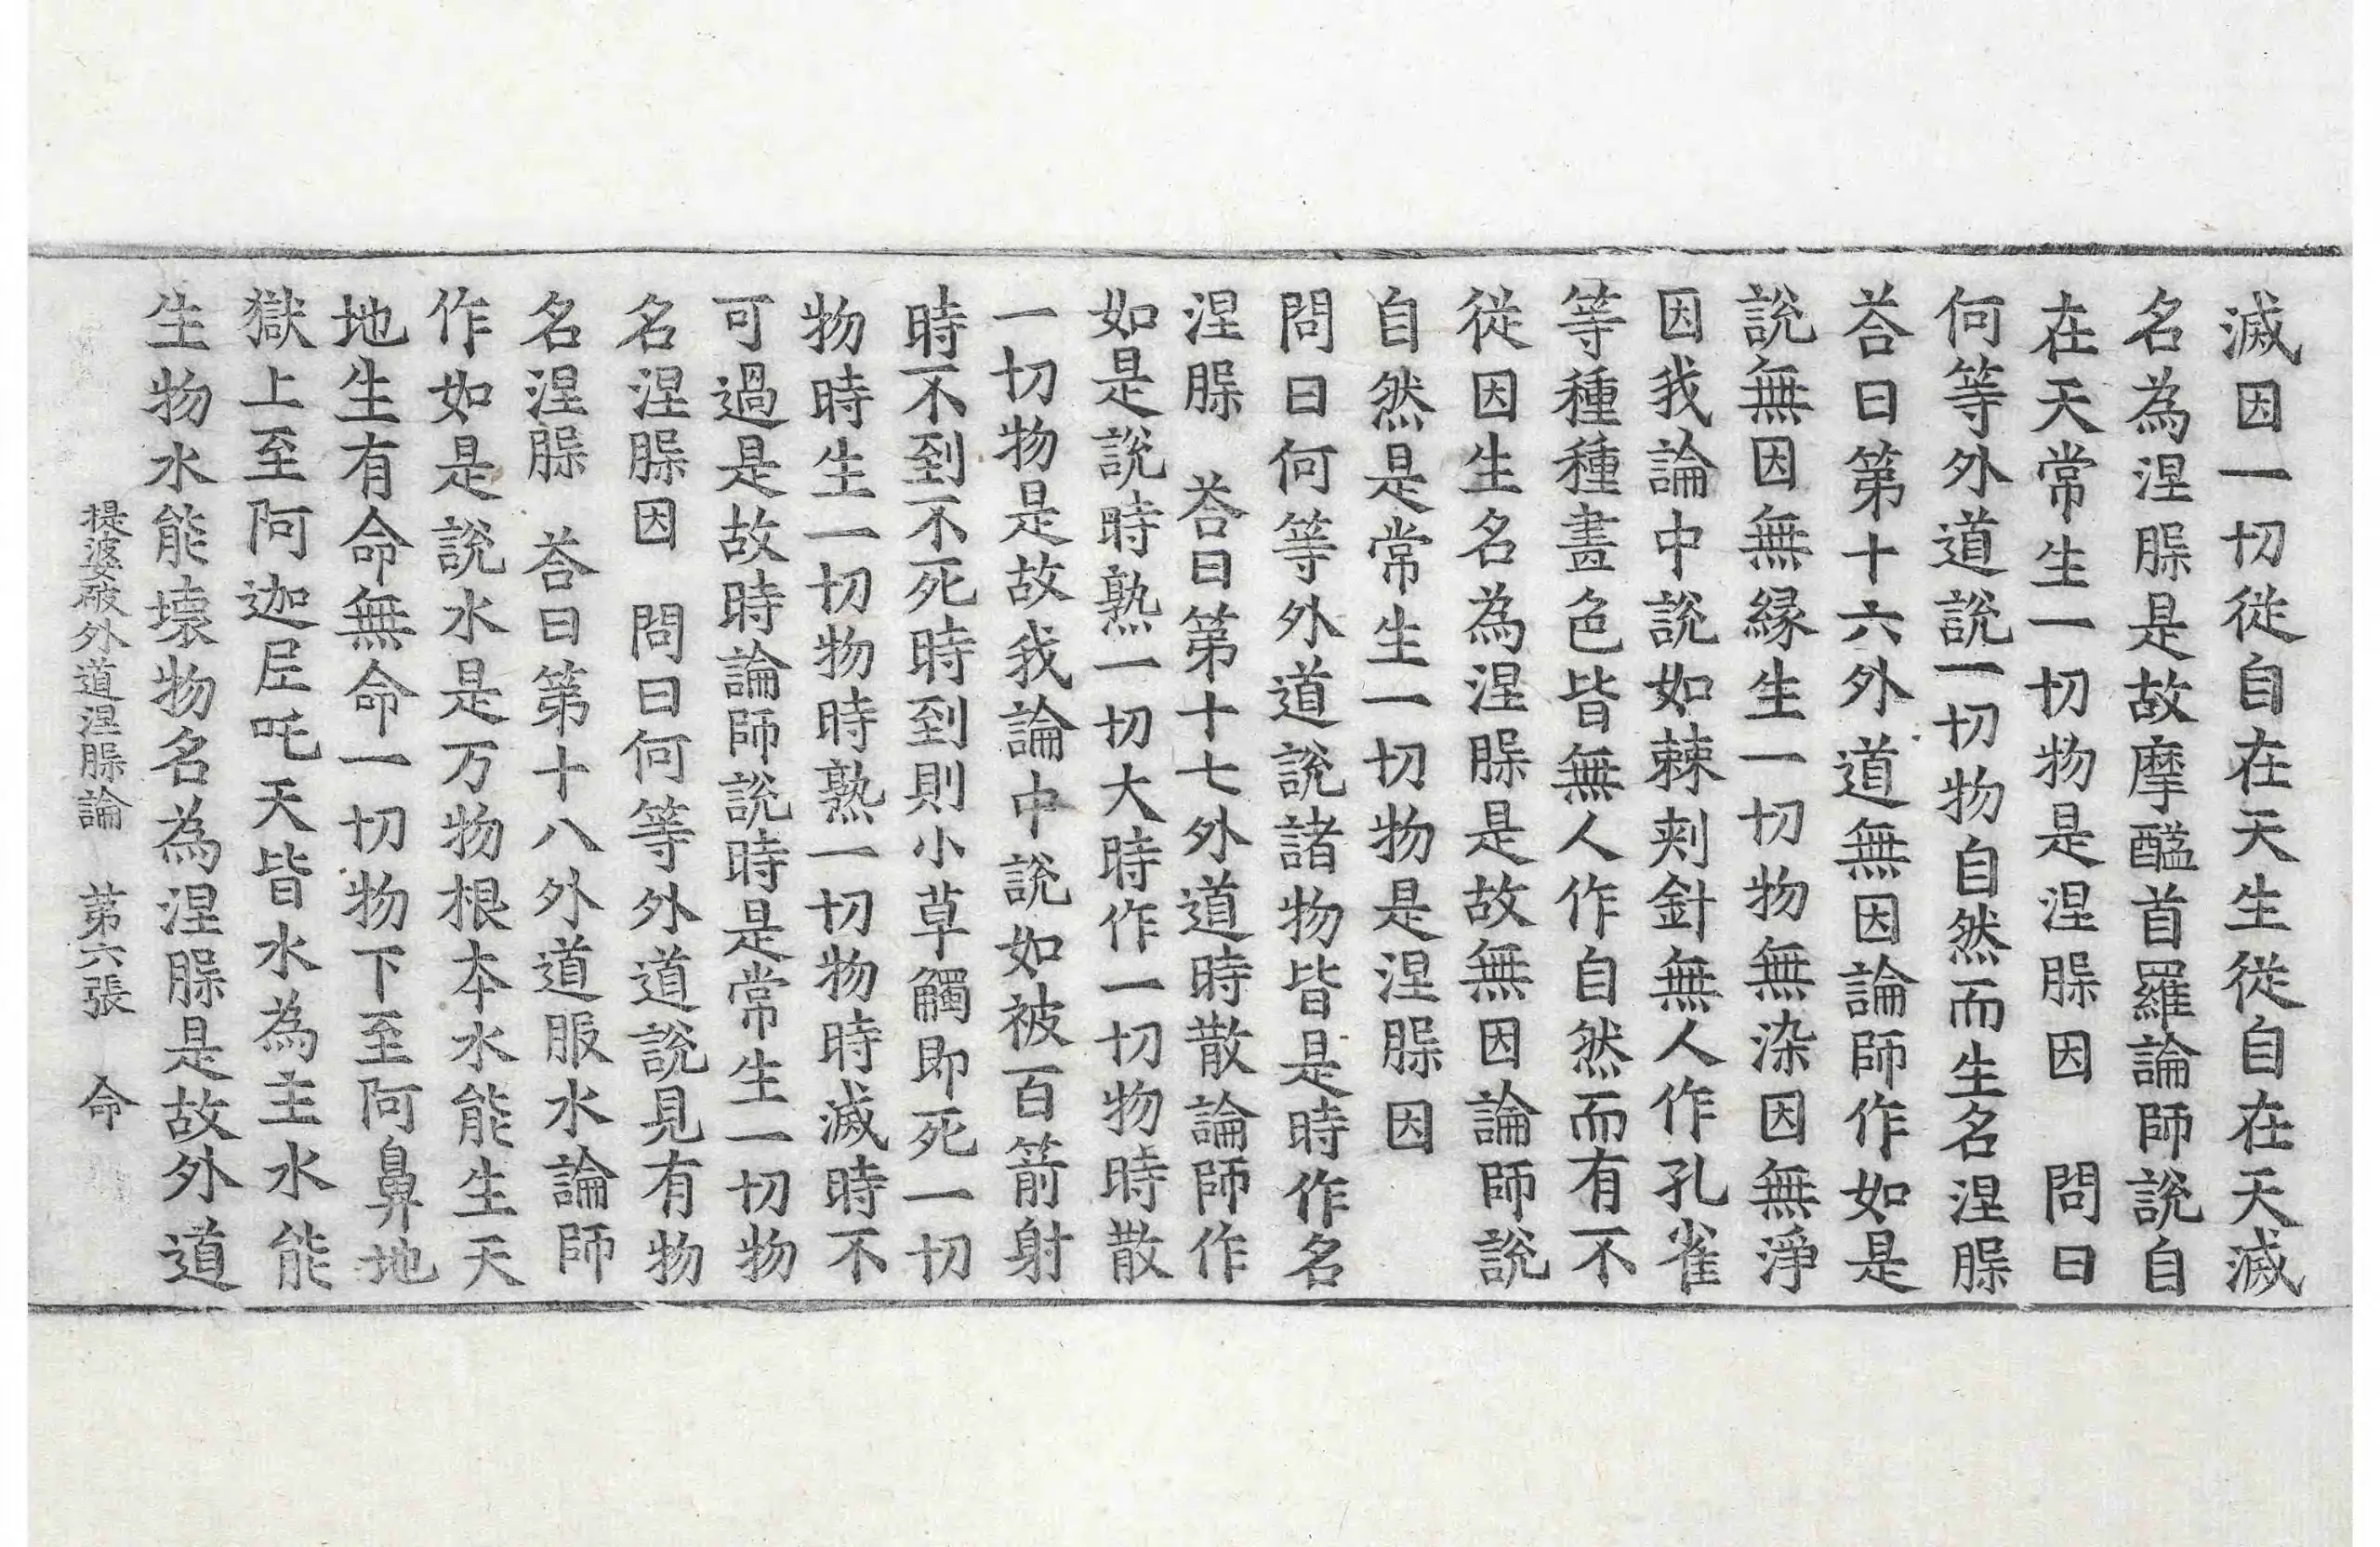 滅因一切從自在天生從自在天滅
名為涅槃是故摩醯首羅論師說自
在天常生一切物是涅槃因　問曰
何等外道說一切物自然而生名涅槃
荅曰第十六外道無因論師作如是
說無因無緣生一切物無染因無淨
因我論中說如棘刾針無人作孔雀
等種種畫色皆無人作自然而有不
從因生名為涅槃是故無因論師說
自然是常生一切物是涅槃因
問曰何等外道說諸物皆是時作名
涅槃　荅曰第十七外道時散論師作
如是說時熟一切大時作一切物時散
一切物是故我論中說如被百箭射
時不到不死時到則小草觸即死一切
物時生一切物時熟一切物時滅時不
可過是故時論師說時是常生一切物
名涅槃因　問曰何等外道說見有物
名涅槃　荅曰第十八外道服水論師
作如是說水是万物根本水能生天
地生有命無命一切物下至阿鼻地
獄上至阿迦尼吒天皆水為主水能
生物水能壞物名為涅槃是故外道
提婆破外道涅槃論　苐六張　命